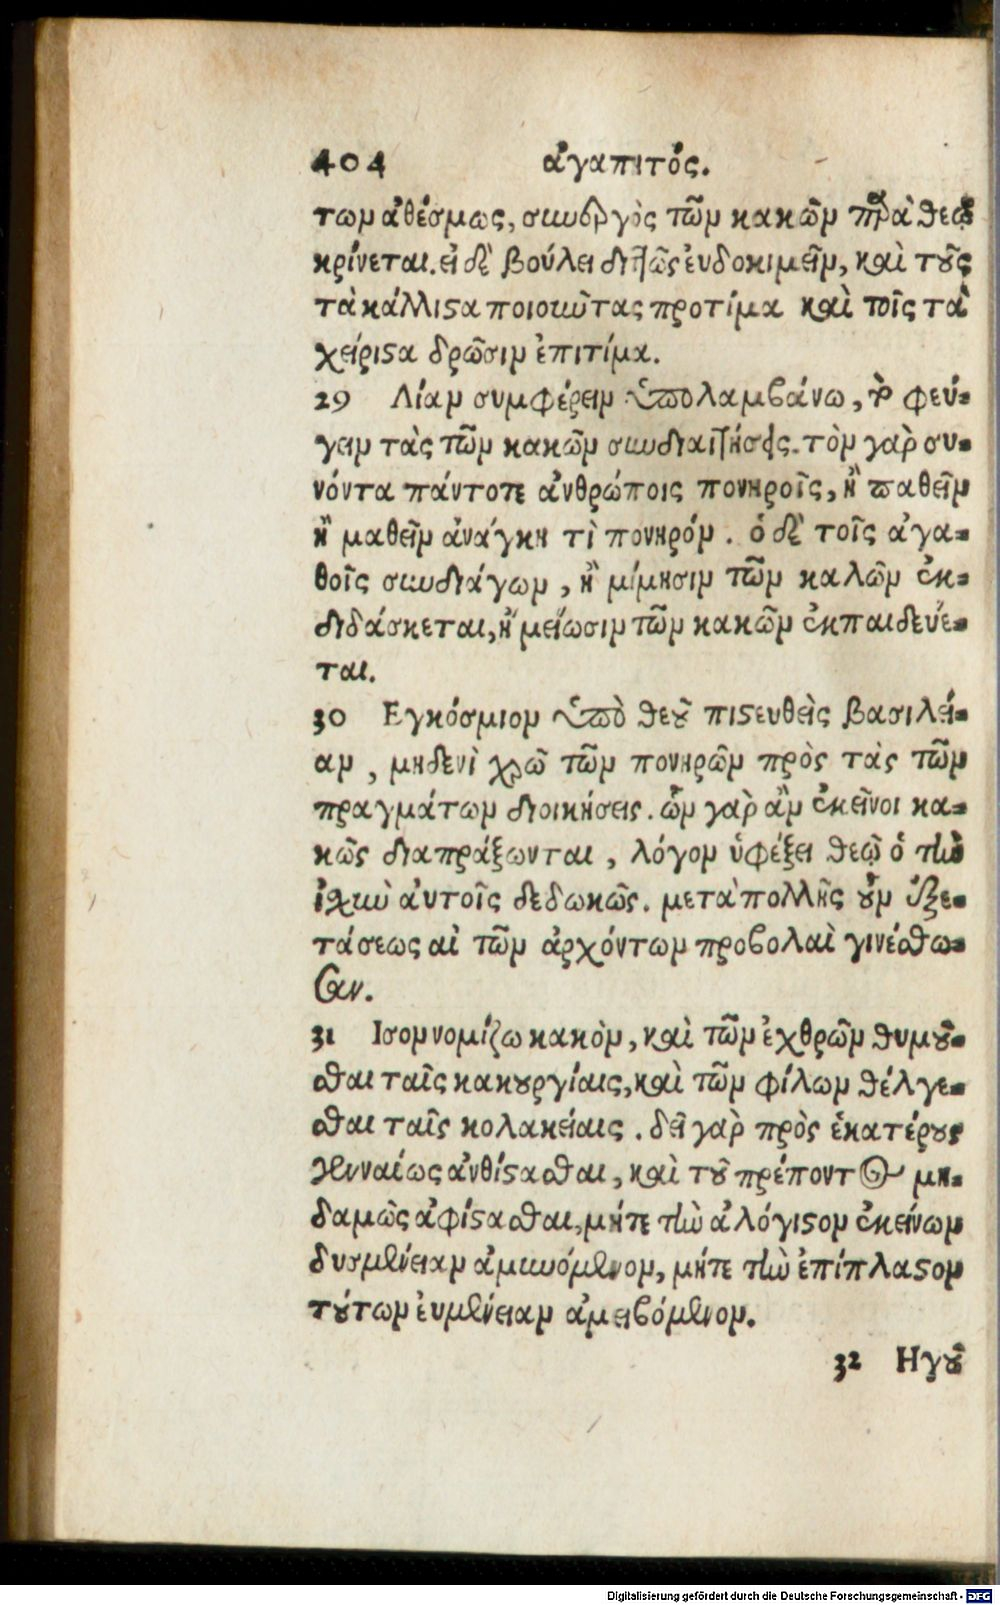 404 ἀγαπητός.
των ἀθέσμως, συνεργὸς τῶν κακῶν παρὰ θεῷ
κρίνεται. εἰ δὲ βούλει διττῶς ἐυδοκιμεῖν, καὶ τοὺς
τὰ κάλλιστα ποιοῦντας προτίμα καὶ τοῖς τὰ
χείριστα δρῶσιν ἐπιτίμα.
29 Λίαν συμφέρειν ὑπολαμβάνω, τὸ φεύ-
γειν τὰς τῶν κακῶν συνδιαιτήσεις. τὸν γὰρ συ-
νόντα πάντοτε ἀνθρώποις πονηροῖς, ἢ παθεῖν
ἢ μαθεῖν ἀνάγκη τὶ πονηρόν. ὁ δὲ τοῖς ἀγα-
θοῖς συνδιάγων, ἢ μίμησιν τῶν καλῶν ἐκ-
διδάσκεται, ἢ μείωσιν τῶν κακῶν ἐκπαιδεύε-
ται.
30 Εγκόσμιον ὑπὸ θεοῦ πιστευθεὶς βασιλεί-
αν, μηδενὶ χρῶ τῶν πονηρῶν πρὸς τὰς τῶν
πραγμάτων διοικήσεις. ὧν γὰρ ἂν ἐκεῖνοι κα-
κῶς διαπράξωνται, λόγον ὑφέξει θεῷ ὁ τὴν
ἰχὺν ἀυτοῖς δεδωκώς. μετὰ πολλῆς οὖν ἐξε-
τάσεως αἱ τῶν ἀρχόντων προβολαὶ γινέσθω-
σαν.
31 Ισον νομίζω κακὸν, καὶ τῶν ἐχθρῶν θυμοῦ-
σθαι ταῖς κακουργίαις, καὶ τῶν φίλων θέλγε-
σθαι ταῖς κολακείαις. δεῖ γὰρ πρὸς ἑκατέρους
γενναίως ἀνθίστασθαι, καὶ τοῦ πρέποντος μη-
δαμῶς ἀφίστασθαι, μήτε τὴν ἀλόγιστον ἐκείνων
δυσμένειαν ἀμυνόμενον, μήτε τὴν ἐπίπλαστον
τούτων ἐυμένειαν ἀμειβόμενον.
32 Ηγοῦ
Digitalisierung gefördert durch die Deutsche Forschungsgemeinschaft - DFG